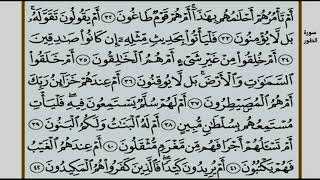 سورة
الطور
أَمْ تَأْمُرُهُمْ أَحْلَامُهُم بِهَٰذَا أَمْ هُمْ قَوْمٌ طَاغُونَ ٣٢ أَمْ يَقُولُونَ تَقَوَّلَهُ
بَل لَّا يُؤْمِنُونَ ٣٣ فَلْيَأْتُوا بِحَدِيثٍ مِّثْلِهِ إِن كَانُوا صَادِقِينَ
٣٤ أَمْ خُلِقُوا مِنْ غَيْرِ شَيْءٍ أَمْ هُمُ الْخَالِقُونَ ٣٥ أَمْ خَلَقُوا
السَّمَوَاتِ وَالْأَرْضَ بَل لَّا يُوقِنُونَ ٣٦ أَمْ عِندَهُمْ خَزَائِنُ رَبِّكَ
أَمْ هُمُ الْمُصَيْطِرُونَ ٣٧ أَمْ لَهُمْ سُلَّمٌ يَسْتَمِعُونَ فِيهِ فَلْيَأْتِ
مُسْتَمِعُهُم بِسُلْطَانٍ مُّبِينٍ ٣٨ أَمْ لَهُ الْبَنَاتُ وَلَكُمُ الْبَنُونَ ٣٩
أَمْ تَسْأَلُهُمْ أَجْرًا فَهُم مِّن مَّغْرَمٍ مُّثْقَلُونَ ٤٠ أَمْ عِندَهُمُ الْغَيْبُ
فَهُمْ يَكْتُبُونَ ٤١ أَمْ يُرِيدُونَ كَيْدًا فَالَّذِينَ كَفَرُوا هُمُ الْمَكِيدُونَ ٤٢